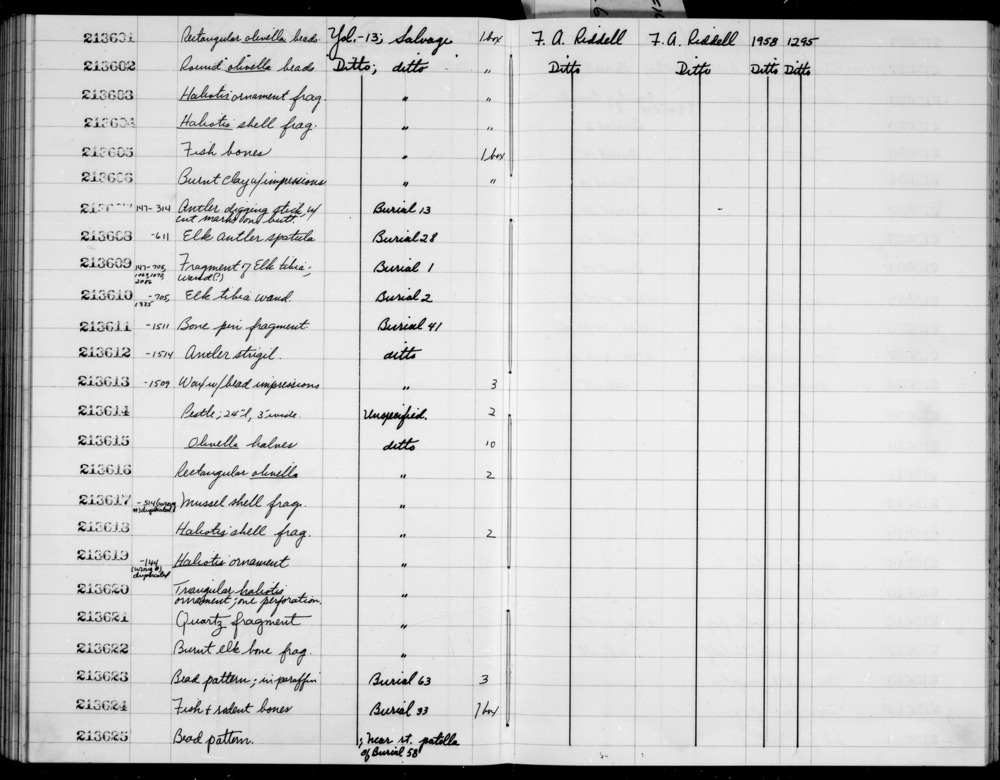 213601 Rectangular olivella beads Yol.-13; Salvage 1 box F. A. Riddell F. A. Riddell 1958 1295
213602 Round olivella beads Ditto; ditto " Ditto Ditto Ditto Ditto
213603 Haliotis ornament frag. " "
213604 Haliotis shell frag. " "
213605 Fish bones " 1 box
213606 Burnt clay w/impressions " "
147-314 Antler digging stick, w/ Burial 13
cut marks on butt
213608 -611 Elk antler spatula Burial 28
213609 147-705 Fragment of Elk tibia; Burial 1
wand(?)
2086
213610 -705 Elk tibia wand. Burial 2
1935
213611 -1511 Bone pin fragment. Burial 41
213612 -1514 Antler strigil. ditto
213613 -1509 Wax w/bead impressions " 3
213614 Pestle; 24" l, 3" wide. Unspecified. 2
213615 Olivella halves ditto 10
213616 Rectangular olivella " 2
213617 -514 (wrong Mussel shell frag. "
#) duplicated
213618 Haliotis shell frag. " 2
213619 -144 Haliotis ornament "
(wrong #)
duplicated
213620 Trangular haliotis "
ornament; one perforation.
213621 Quartz fragment "
213622 Burnt elk bone frag. "
213623 Bead pattern; in paraffin Burial 63 3
213624 Fish + rodent bones Burial 33 1 box
213625 Bead pattern. ; Near rt. patella
of Burial 58